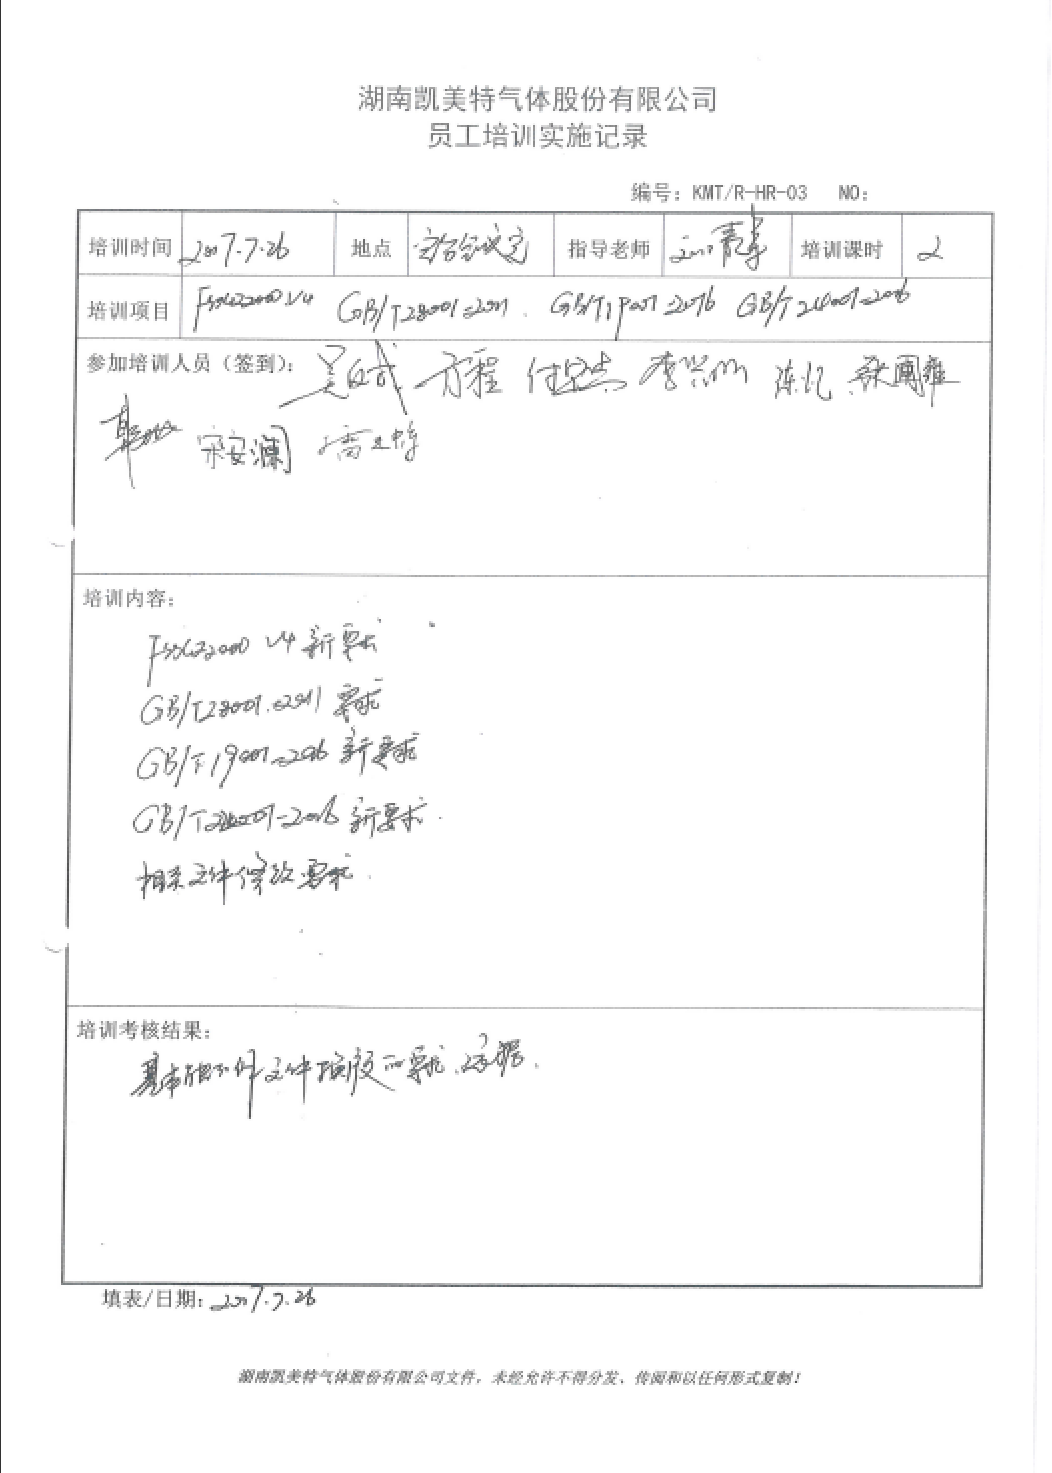 湖南凯美特气体股份有限公司
员工培训实施记录
编号：KMT/R-HR-03 NO：
培训时间 2017.7.26 地点 指导老师 培训课时 2
培训项目 FSSC22000 V4 GB/T28001-2011、GB/T19001-2016 GB/T24001-2016
参加培训人员（签到）： 方程
宋安澜
培训内容：
FSSC22000 V4 新要求
GB/T28001-2011 要求
GB/T19001-2016 新要求
GB/T24001-2016 新要求.
相关文件修改要求.
培训考核结果：
填表/日期：2017.7.26
湖南凯美特气体股份有限公司文件，未经允许不得分发、传阅和以任何形式复制！